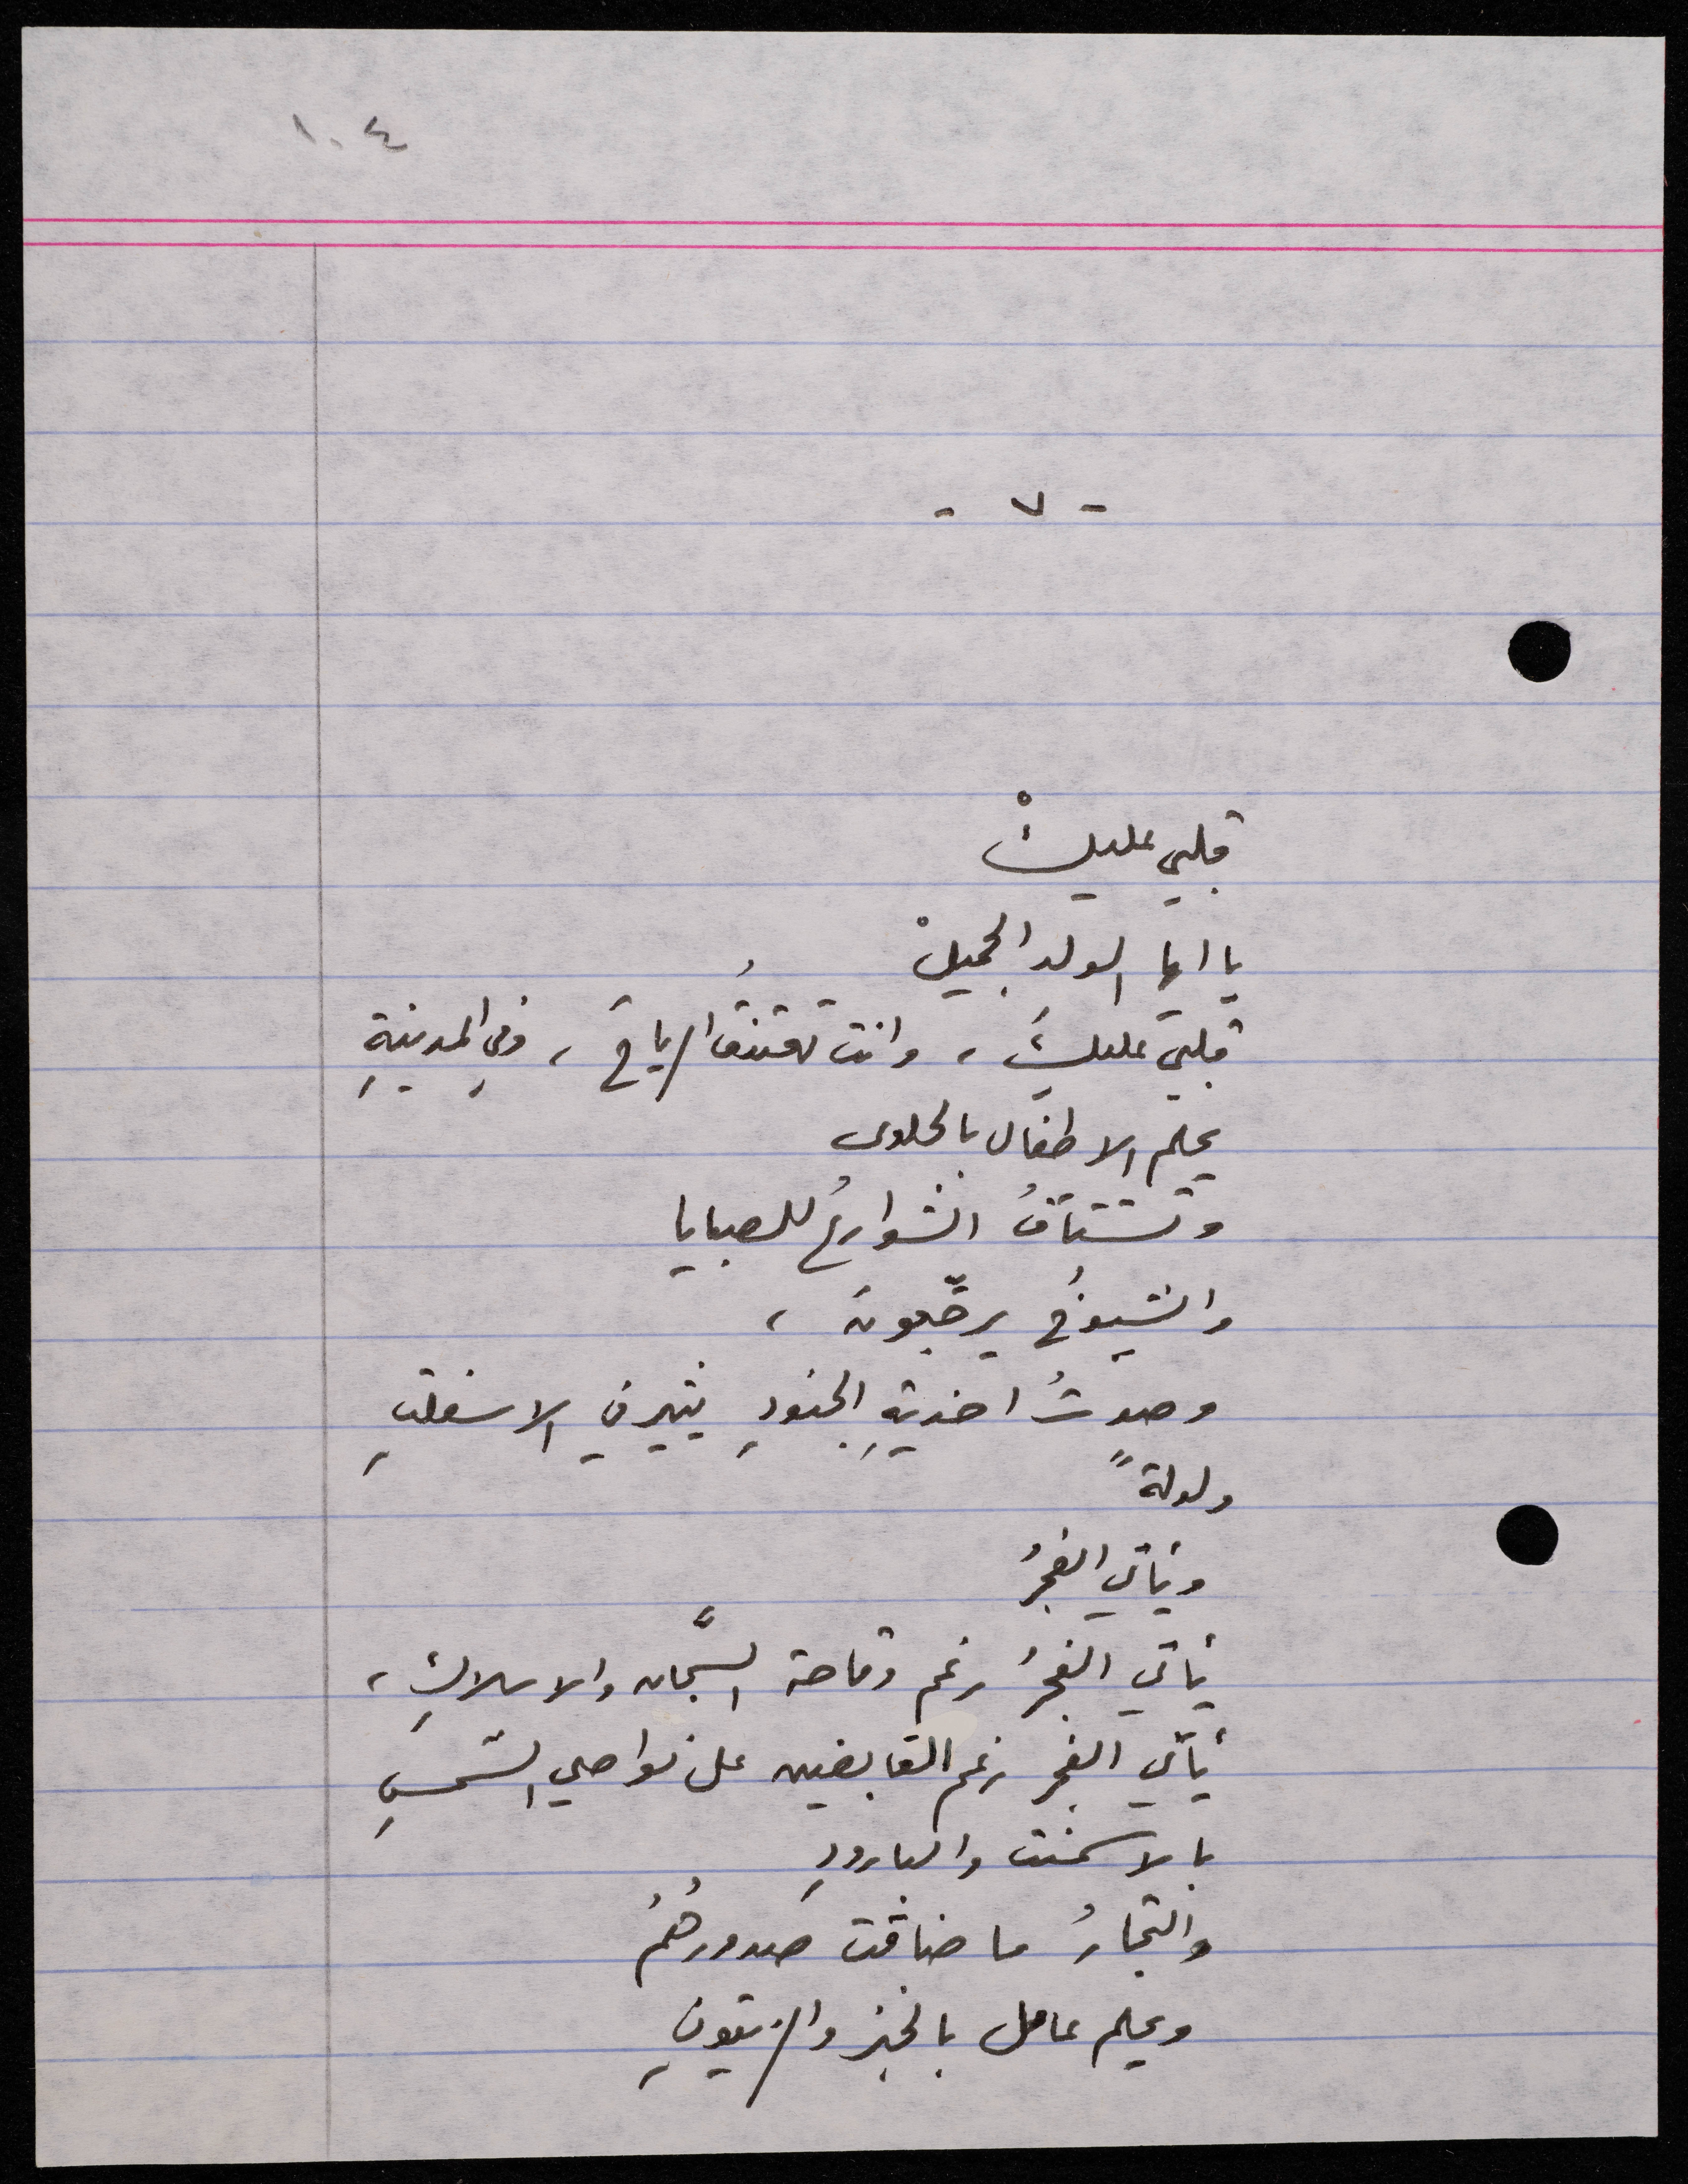 ١٠٤
- ٧ -
قلبي عليكْ
يا ايها الولد الجميلْ
قلبي عليكَ ، وانت تقتنصُ الرياحَ ، وفي المدينةِ
يحلم الاطفال بالحلوى
وتشتاقُ الشوارعُ للصبايا
والشيوخُ يرجّعونَ ،
وصوتُ احذيةِ الجنودِ يثير في الاسفلتِ
ولولةً
ويأتي الفجرُ
يأتي الفجرُ رغم وقاحة السَّجان والاسلاكِ ،
يأتي الفجر رغم القابضين على نواصي الشمسِ
بالاسمنت والبارودِ
والتجارُ ما ضاقت صدورُهُمُ
ويحلم عامل بالخبز والزيتونِ